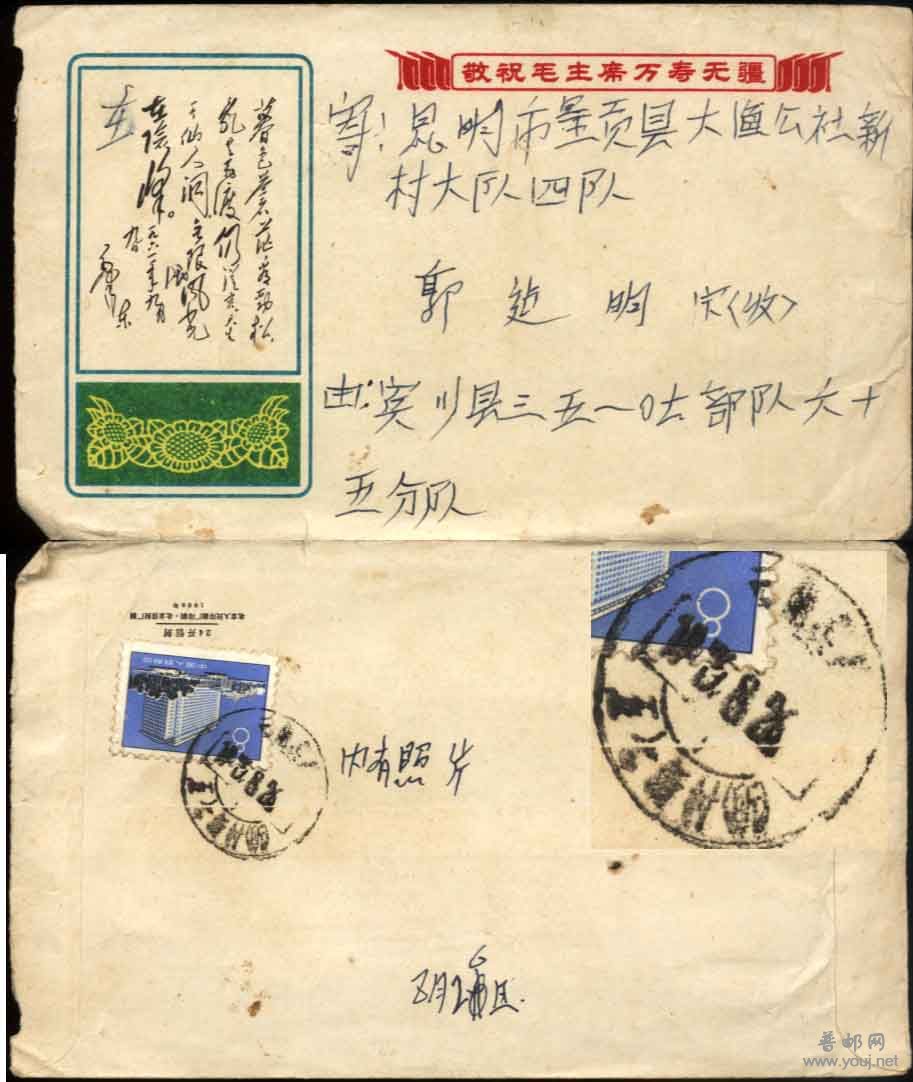 敬祝毛主席万寿无疆
暮色苍茫看劲松
乱云飞渡仍从容天生
一个仙人洞无限风光
在险峰。
一九六一年九月
九日
毛泽东
寄：昆明市呈贡县大渔公社新
村大队四队
郭延明
由：宾川县三五一〇七部队六十
五分队
24开信封
1968年
中国人民邮政
8
内有照片
普邮网
www.youj.net